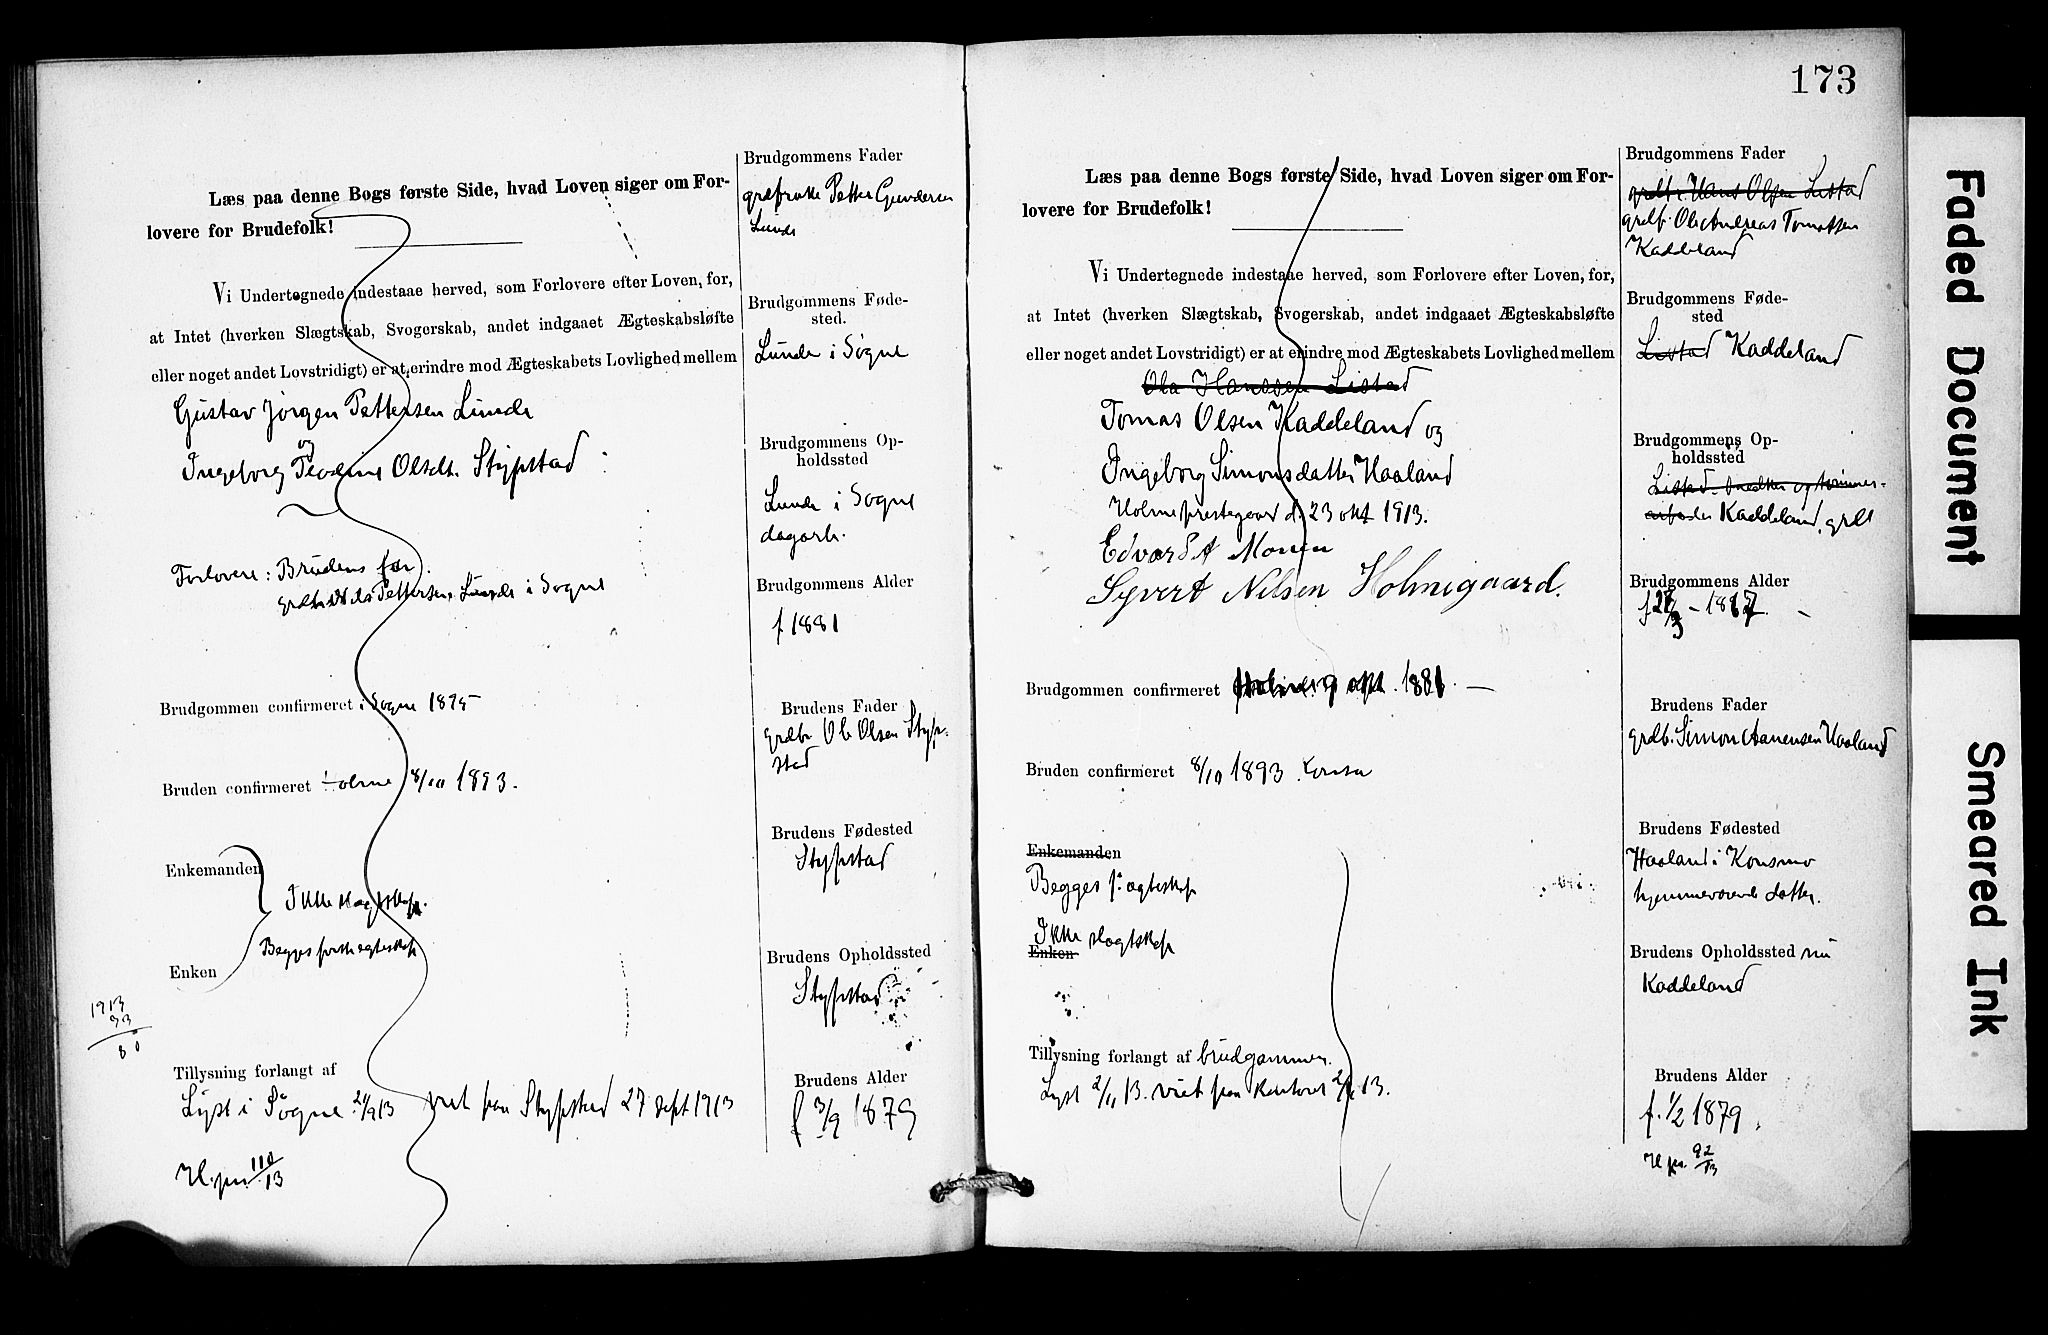 Læs paa denne Bogs første Side, hvad Loven siger om For-
lovere for Brudefolk!
Vi Undertegnede indestaae herved, som Forlovere efter Loven, for,
at Intet (hverken Slægtskab, Svogerskab, andet indgaaet Ægteskabsløfte
eller noget andet Lovstridigt) er at erindre mod Ægteskabets Lovlighed mellem
Gustav Jörgen Pettersen Lunde
og
Ingeborg Teodine Olsdt. Stypstad
Forlovere: Brudens far.
Pettersen Lunde i Sogne
Brudgommen confirmeret i Sogne 1895
Bruden confirmeret Holme 8/10 1893.
Enkemanden
Ikke slægtskap.
Begges første egteskap
Enken
1913
33
80
Tillysning forlangt af
Lyst i Sögne 21/9 13 viet paa Stypstad 27 sept 1913
H.pr. 110/13
Brudgommens Fader
Petter Gundersen
Lunde
Brudgommens Føde-
sted.
Lunde i Sögne
Brudgommens Op-
holdssted
Lunde i Sogne
dagarb.
Brudgommens Alder
f 1881
Brudens Fader
grdbr Ole Olsen Styp-
stad
Brudens Fødested
Stypstad
Brudens Opholdssted
Stypstad
Brudens Alder
f 3/9 1879
173
Læs paa denne Bogs første Side, hvad Loven siger om For-
lovere for Brudefolk!
Vi Undertegnede indestaae herved, som Forlovere efter Loven, for,
at Intet (hverken Slægtskab, Svogerskab, andet indgaaet Ægteskabsløfte
eller noget andet Lovstridigt) er at erindre mod Ægteskabets Lovlighed mellem
Ola Hanssen Listad
Tomas Olsen Kaddeland og
Ingeborg Simonsdatter Haaland
Holme prestegaard d. 23 okt 1913.
Edvard A Monen
Syvert Nilsen Holmegaard.
Brudgommen confirmeret 1881.
Bruden confirmeret 8/10 1893
Enkemanden
Begges 1' egteskap
Ikke slegtskap
Enken
Tillysning forlangt af brudgommen.
Lyst 2/11 13. viet paa Kontoret 13.
Brudgommens Fader
grdbr. Hans Olsen Listad
grdb. Ole Andreas Tomassen
Kaddeland
Brudgommens Føde-
sted
Listad Kaddeland
Brudgommens Op-
holdssted
Listad. snedker og tömmer-
arbeider Kaddeland,
Brudgommens Alder
Brudens Fader
grdb. Simon Aanensen Haaland
Brudens Fødested
Haaland i Konsmo
hjemmeværende datter.
Brudens Opholdssted nu
Kaddeland
Brudens Alder
f. 1/2 1879.
H pr. 92/13
Faded Document
Smeared Ink